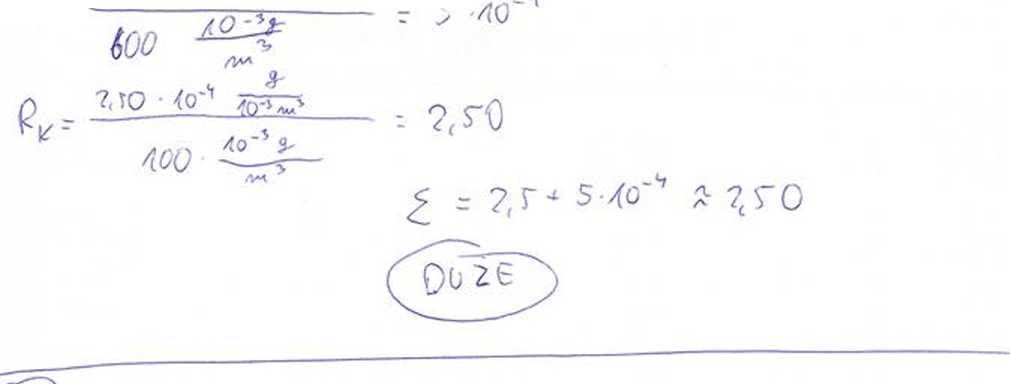 600 10⁻³g/m³ = 5·10⁻⁴
R_K = (2,50·10⁻⁴ g/10⁻³m³)/(100·10⁻³g/m³) = 2,50
Σ = 2,5 + 5·10⁻⁴ ≈ 2,50
DUŻE